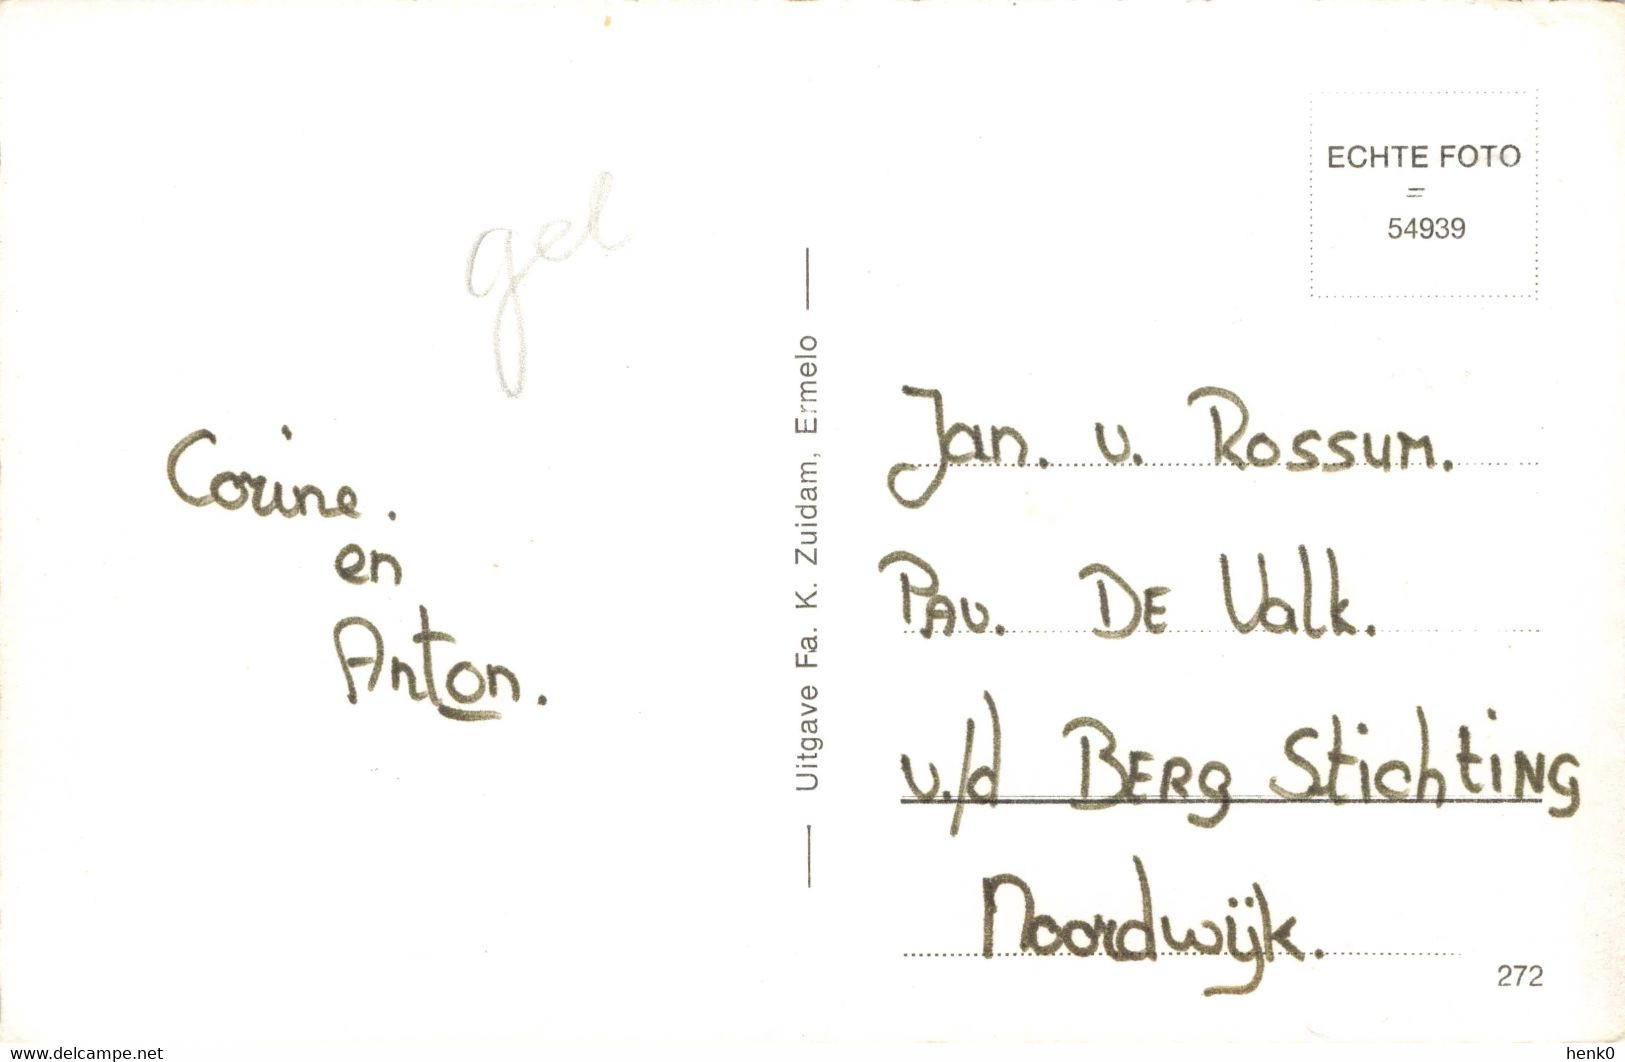 gel
Corine.
en
Anton.
Uitgave Fa. K. Zuidam, Ermelo
ECHTE FOTO
=
54939
Jan. v. Rossum.
Pav. De Valk.
v/d Berg Stichting
Noordwijk.
272
www.delcampe.net
henk0